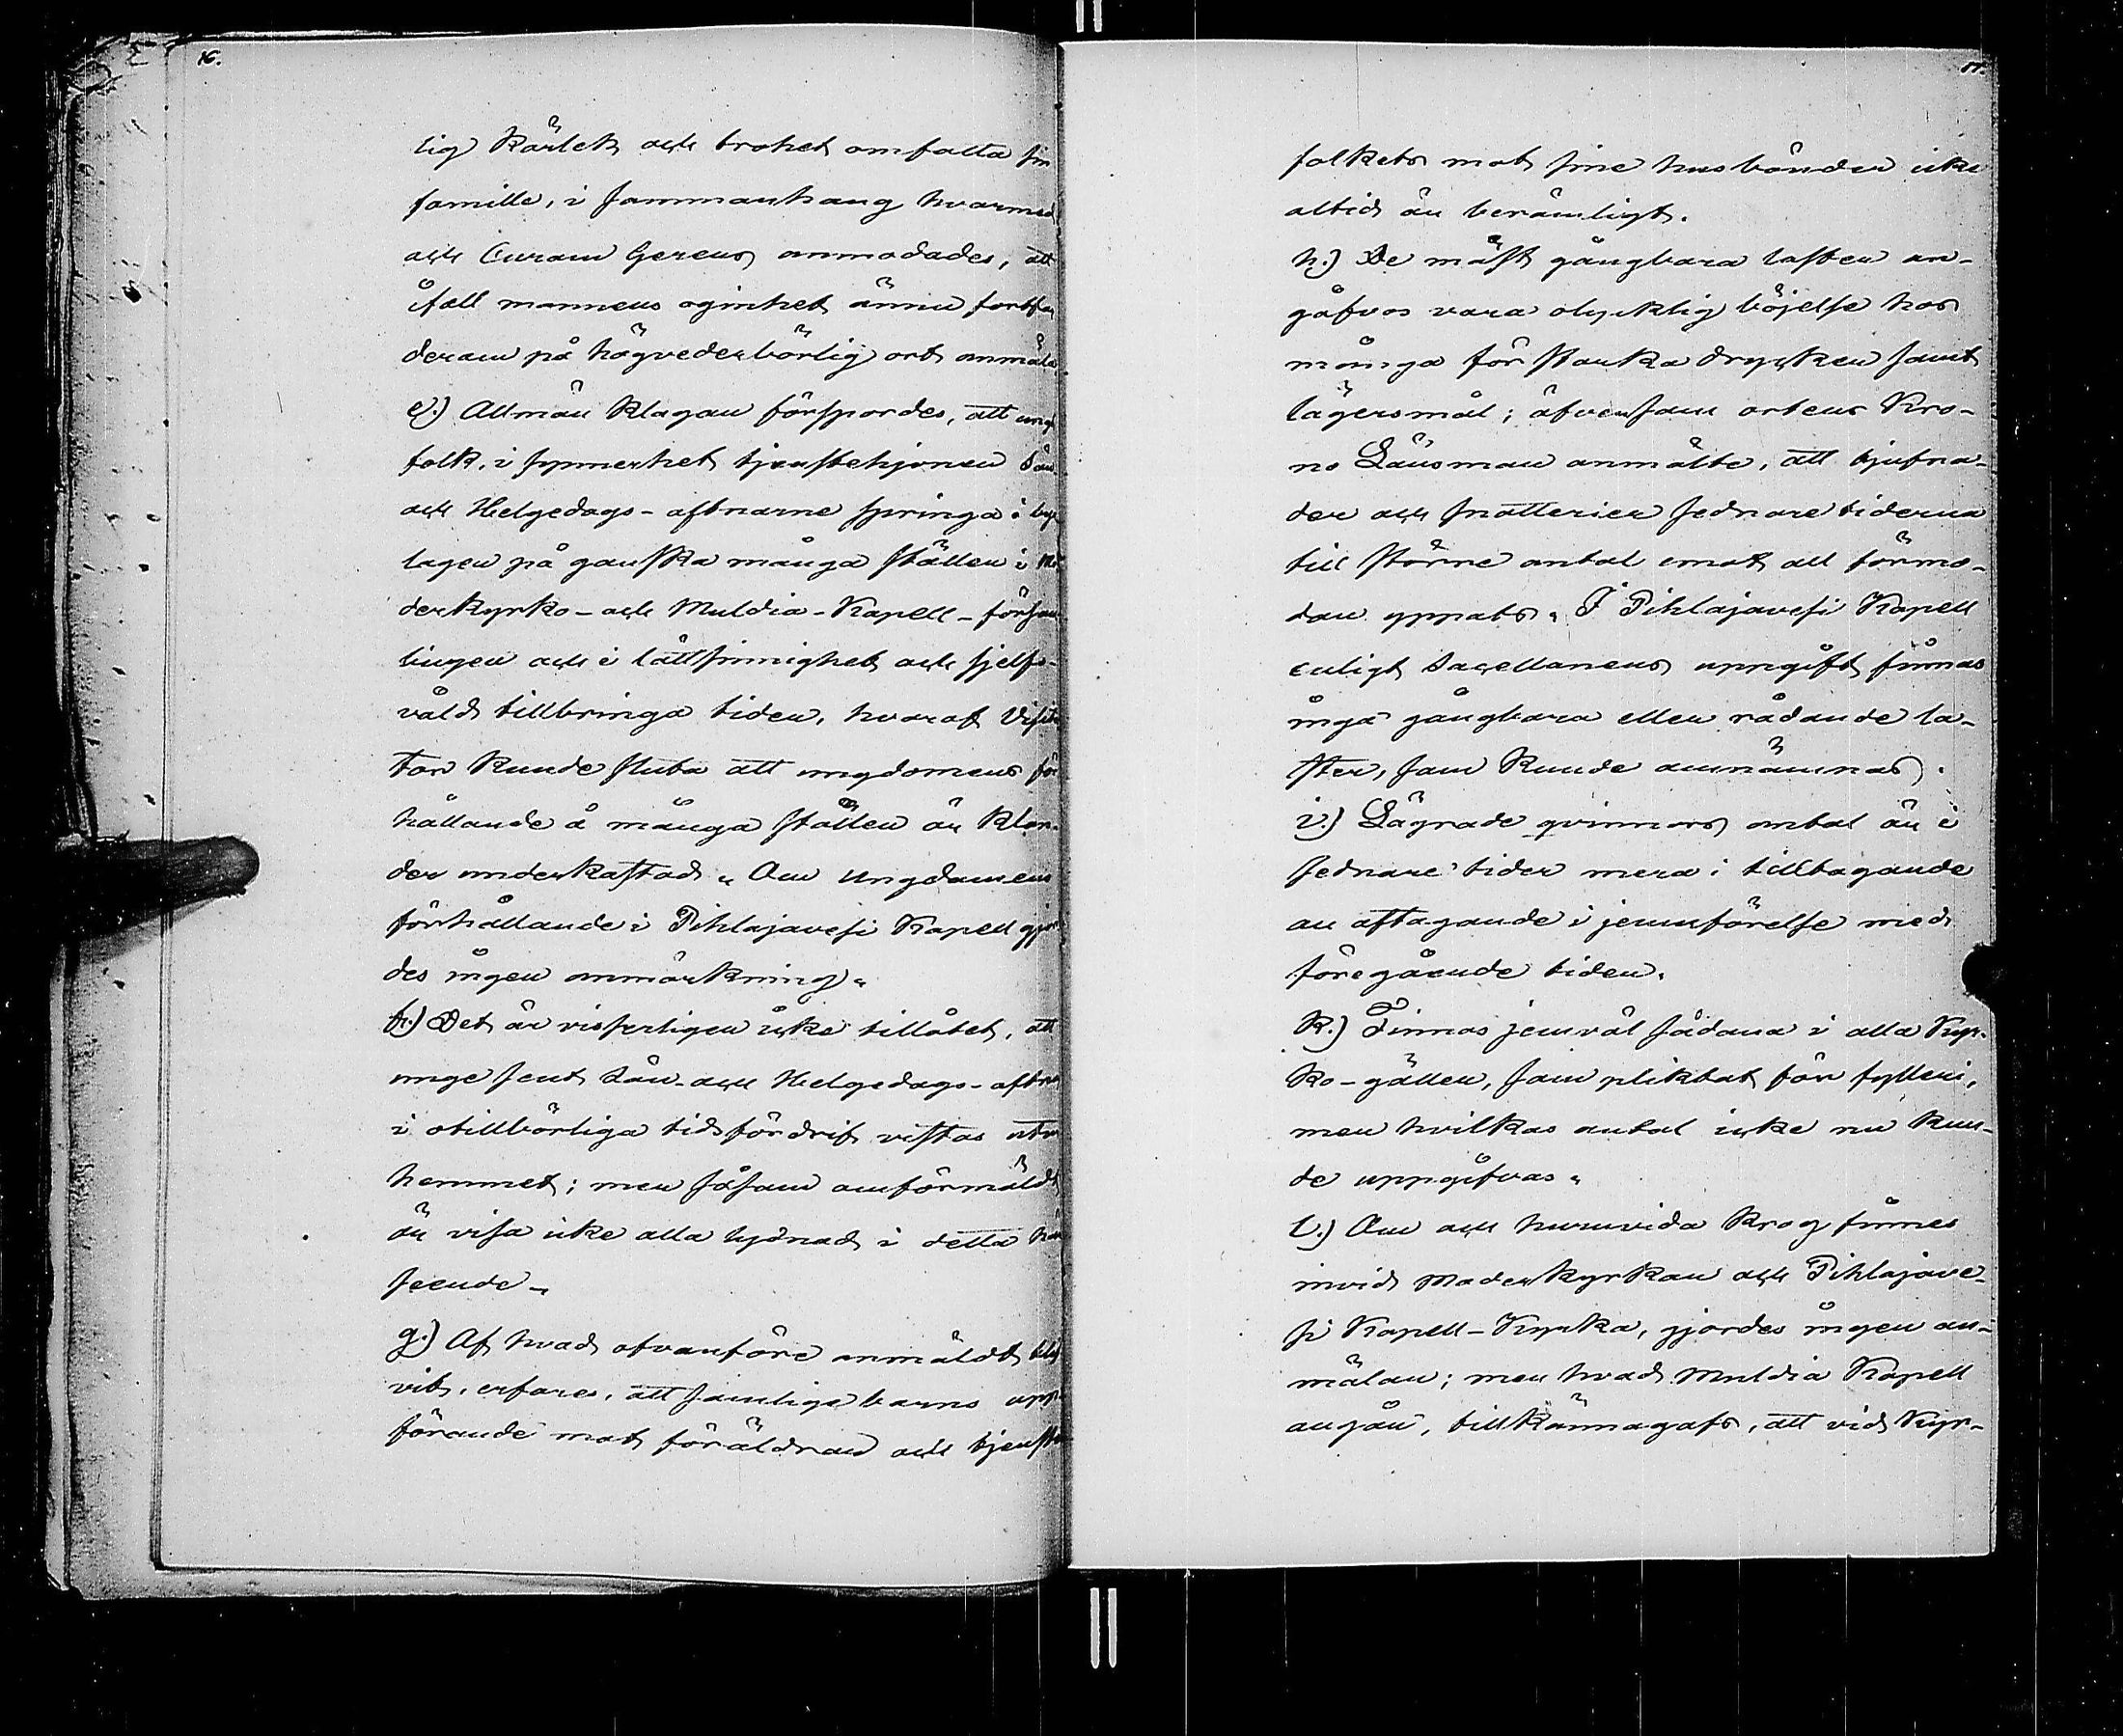 16.
lig kärlek och trohet omfatta sin
famille, i sammanhang hvarmed
ock Curam Gerens anmodades, att
ifall mannens oginhet ännu fortfar
derom på högvederbörlig ort anmäla
e.) Allmän klagan försporde, att ungt
folk, i synnerhet tjenstehjonen Sön-
och Helgedags-aftnarne springa i bya
lagen på ganska många ställen i Mo
derkyrko- och Muldia-Kapell-försam
lingen och i lättsinnighet och sjelfs-
våld tillbringa tiden, hvaraf Visita
tor kunde sluta att ungdomens för
hållande å många ställen är klan-
der underkastad. Om Ungdomens
förhållande i Pihlajavesi Kapell gjor
des ingen anmärkning.
f.) Det är visserligen icke tillåtet, att
unge sent Sön- och Helgedags-aftnar
i otillbörliga tidsfördrif vistas utom
hemmet; men såsom omförmäldt
är visa icke alla lydnad i detta hän
seende.
g.) Af hvad ofvanföre anmäldt blif
vit, erfares, att samtliga barns upp-
förande mot föräldrar och tjenste
17.
folkets mot sine husbönder icke
altid är berömligt.
h.) De mäst gångbara laster an-
gåfvos vara olycklig böjelse hos
många för starka drycker samt
lägersmål; äfvensom ortens Kro-
no Länsman anmälte, att tjufna-
der och snatterier sednare tiderna
till större antal emot all förmo-
dan yppats. I Pihlajavesi Kapell
enligt Sacellanens uppgift finnas
inga gångbara eller rådande la-
ster, som kunde omnämnas.
i.) Lägrade qvinnors antal är i
sednare tider mera i tilltagande
än aftagande i jemförelse med
föregående tider.
k.) Finnas jemväl sådana i alla Kyr-
ko-gällen, som pliktat för fylleri,
men hvilkas antal icke nu kun-
de uppgifvas.
l.) Om och huruvida krog finnes
invid Moderkyrkan och Pihlajave-
si Kapell-Kyrka, gjordes ingen an-
mälan; men hvad Muldia Kapell
angår, tillkännagafs, att vid Kyr-